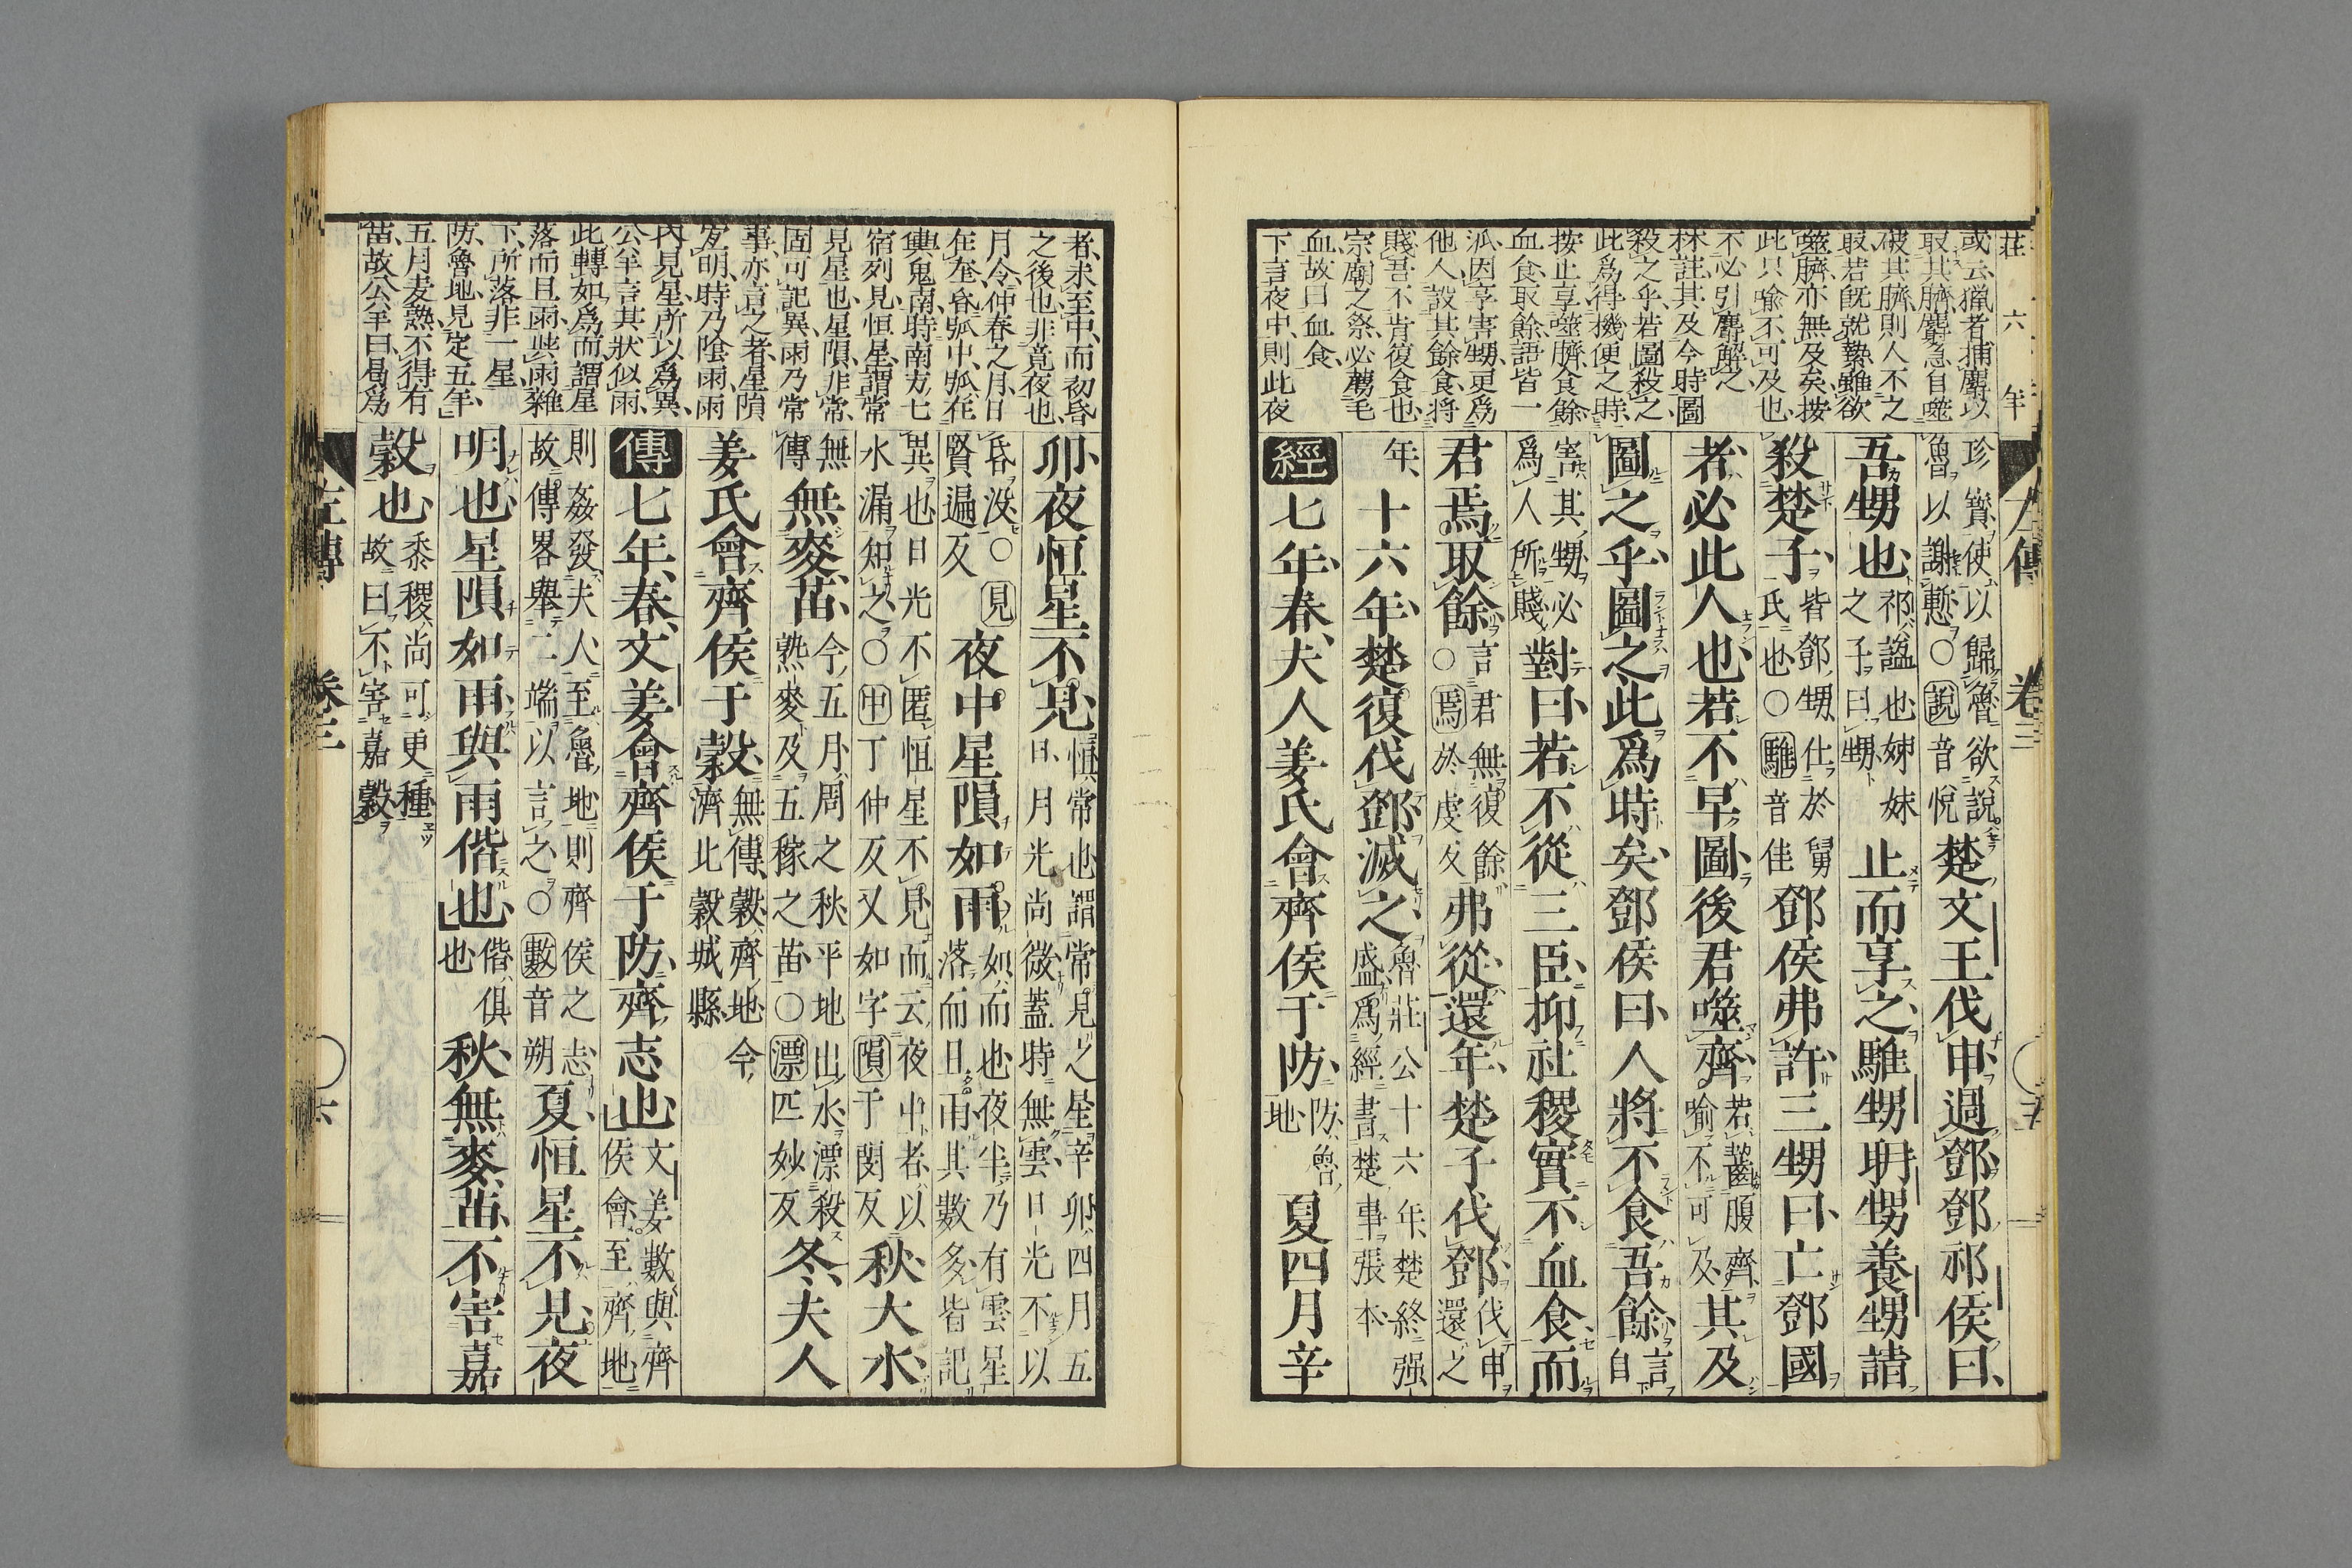 莊六年
或云獵者捕麝以
取其臍麝急自噬
破其臍則人不之
取若既就縶雖欲
噬臍亦無及矣按
此只喻不可及也
不必引麝解之
林註其及今時圖
殺之乎若圖殺之
此爲得機便之時
按止享噬臍食餘
血食取餘語皆一
泒因享害甥更爲
他人設其餘食將
賤吾不肯復食也
宗廟之祭必薦毛
血故曰血食
下言夜中則此夜
左傳 卷三 ○五
珍寶使以歸魯欲說
魯以謝慙○說音悅
楚文王伐申過鄧鄧祁侯曰
吾甥也
祁謚也姉妹
之子曰甥
止而享之騅甥聃甥養甥請
殺楚子
皆鄧甥仕於舅
氏也○騅音佳
鄧侯弗許三甥曰亡鄧國
者必此人也若不早圖後君噬齊
若齧腹齊
喻不可及
其及
圖之乎圖之此爲時矣鄧侯曰人將不食吾餘
言
自
害其甥必
爲人所賤
對曰若不從三臣抑社稷實不血食而
君焉取餘
言君無復餘
○焉於虔反
弗從還年楚子伐鄧
伐申
還之
年
十六年楚復伐鄧滅之
魯莊公十六年楚終强
盛爲經書楚事張本
經七年春夫人姜氏會齊侯于防
防魯
地
夏四月辛
者未至中而初昏
之後也非竟夜也
月令仲春之月日
在奎昏弧中弧在
輿鬼南時南方七
宿列見恒星謂常
見星也星隕非常
固可記異雨乃常
事亦言之者星隕
宜明時乃陰雨雨
內見星所以爲異
公羊言其狀似雨
此轉如爲而謂星
落而且雨與雨雜
下所落非一星
防魯地見定五年
五月麦熟不得有
苗故公羊曰曷爲
卯夜恒星不見
恒常也謂常見之星辛卯四月五
日月光尚微蓋時無雲日光不以
昏沒○見
賢遍反
夜中星隕如雨
如而也夜半乃有雲星
落而且雨其數多皆記
異也日光不匿恒星不見而云夜中者以
水漏知之○中丁仲反又如字隕于閔反
秋大水
無
傳
無麥苗
今五月周之秋平地出水漂殺
熟麥及五稼之苗○漂匹妙反
冬夫人
姜氏會齊侯于穀
無傳穀齊地今
濟北穀城縣
傳七年春文姜會齊侯于防齊志也
文姜數與齊
侯會至齊地
則姦發夫人至魯地則齊侯之志
故傳畧舉二端以言之○數音朔
夏恒星不見夜
明也星隕如雨與雨偕也
偕俱
也
秋無麥苗不害嘉
穀也
黍稷尚可更種
故曰不害嘉穀
左傳 卷三 ○六